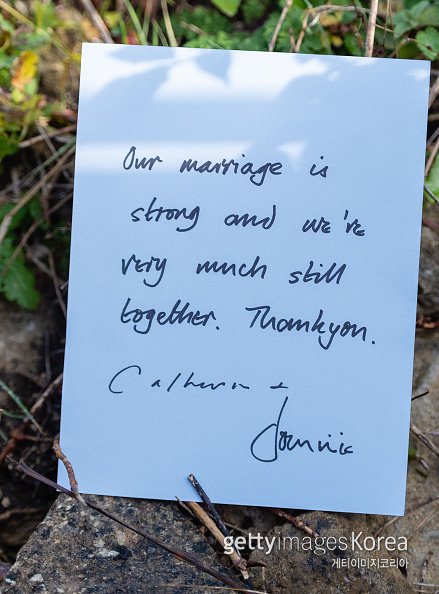 Our marriage is
strong and we're
very much still
together. Thankyou.
Catherine +
Dominic
gettyimagesKorea
게티이미지코리아